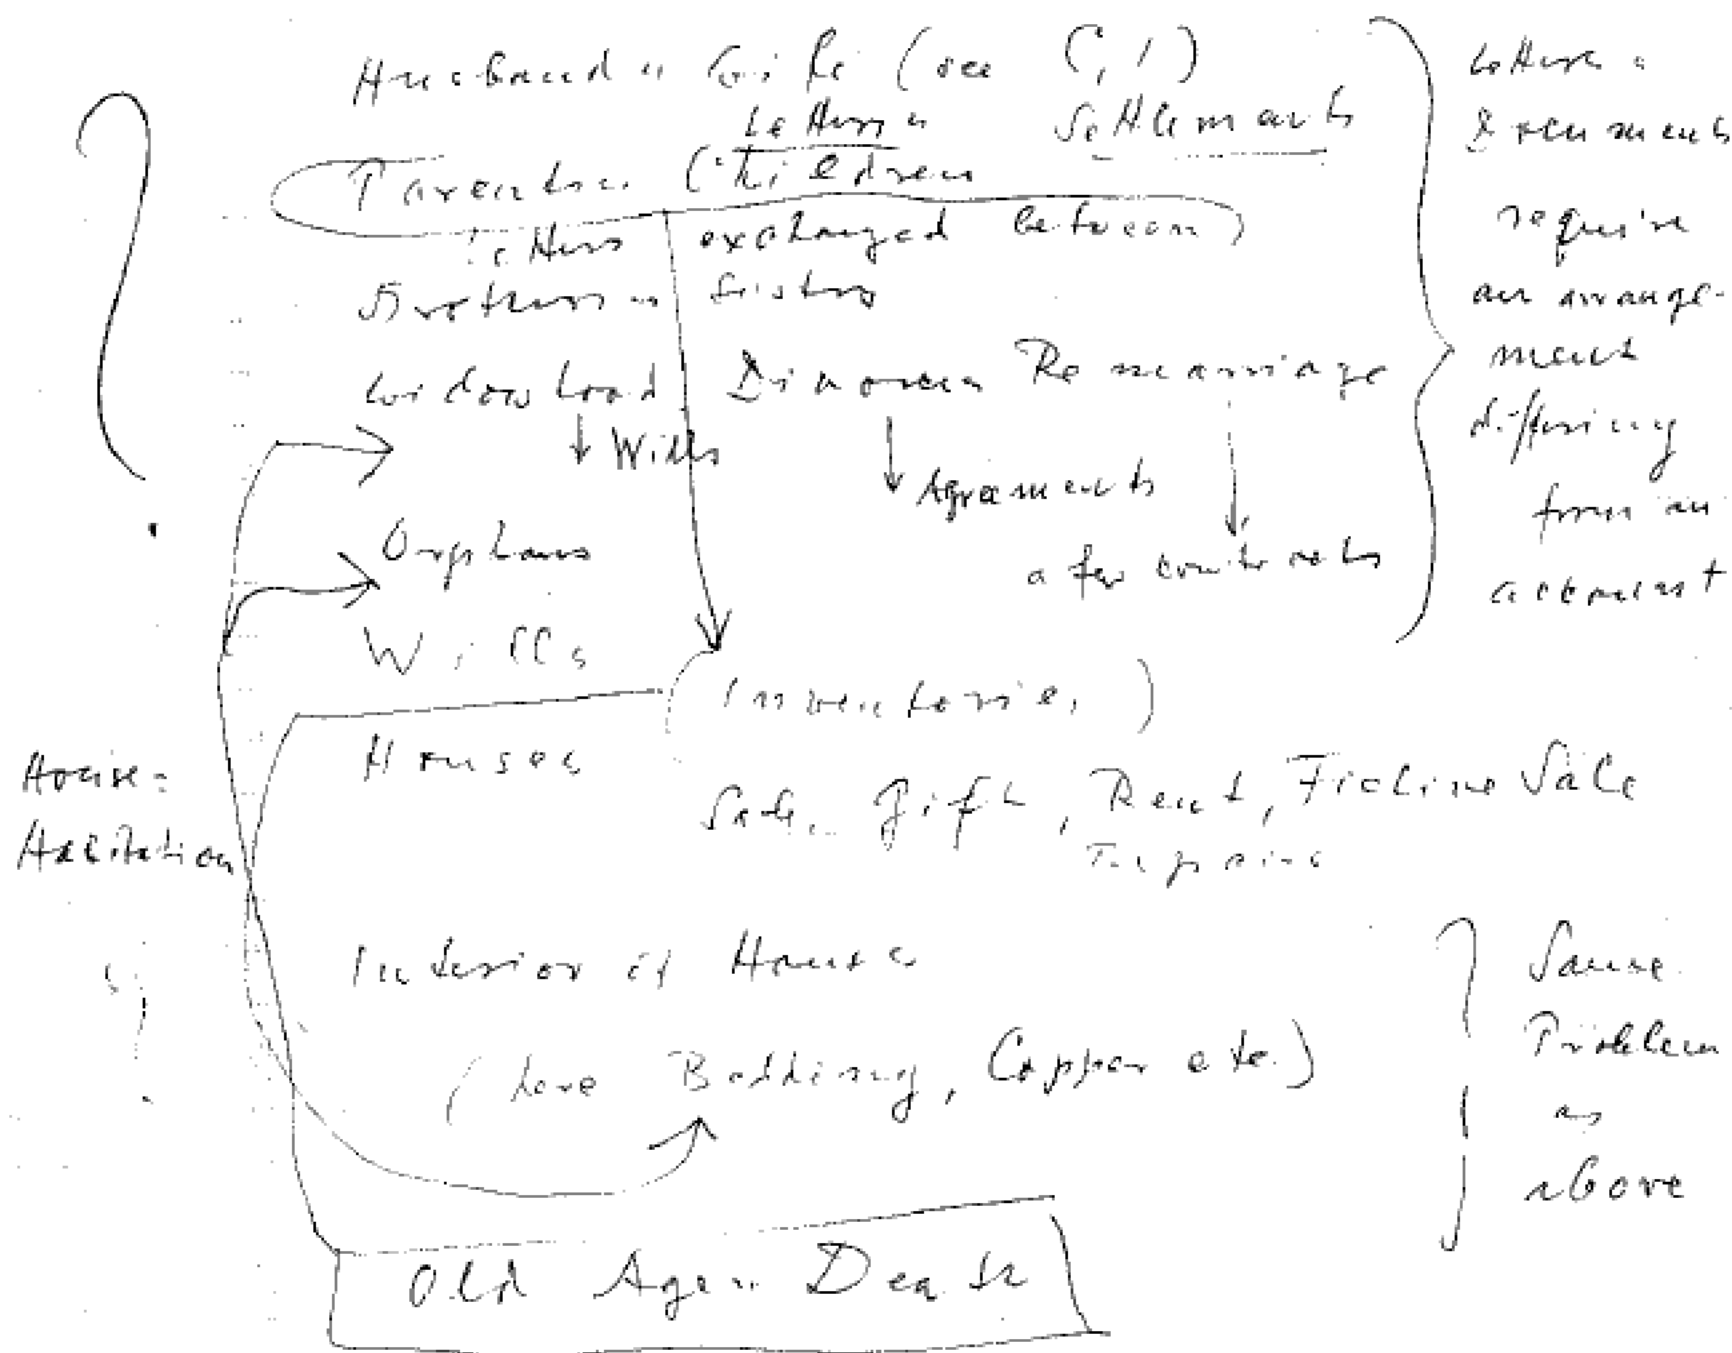 Husband " Wife (see C, 1)
Letters " Settlements
Parents " Children
Letters exchanged between
Brothers " Sisters
Widowhood Divorce " Remarriage
Wills
Agreements
a few contracts
Orphans
Wills
(Inventories)
Houses
Sale, Gift, Rent, Fictive Sale
House =
Habitation
Interior of House
(here Bedding, Copper etc.)
Old Age " Death
Letters "
Documents
require
an arrange-
ment
differing
from an
account
Same
Problem
as
above